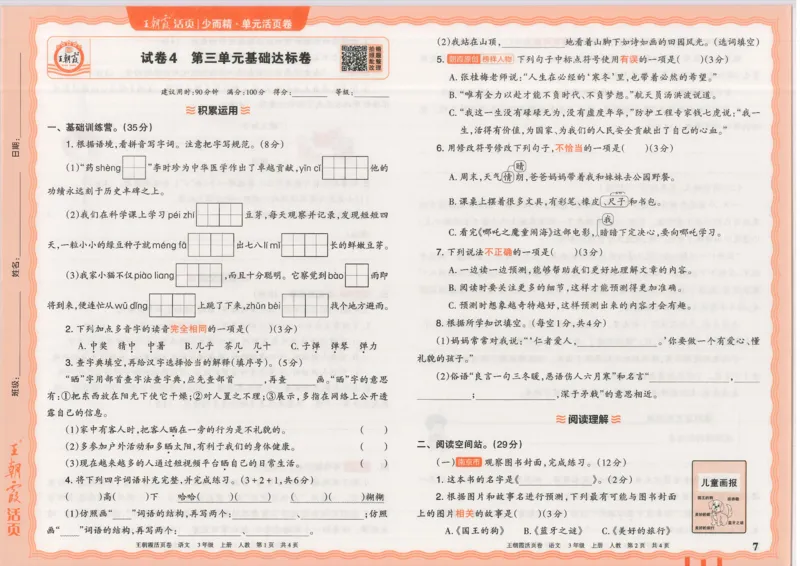 王朝霞活页 少而精·单元活页卷
王朝霞
试卷4 第三单元基础达标卷
建议用时:90分钟 满分:100分 得分:________ 等级:________
积累运用
一、基础训练营。(35分)
1.根据语境,看拼音写字词。注意把字写规范。(8分)
(1)“药shèng ”李时珍为中华医学作出了卓越贡献,yīn cǐ 他的
功绩永远刻于历史丰碑之上。
(2)我们在科学课上学习péi zhí 豆芽,每天观察并记录,发现短短四
天,一粒小小的绿豆种子就méng fā 出七八lí mǐ 长的鲜嫩豆芽。
(3)我家小猫不仅piào liang ,而且十分聪明。它察觉到bào 雨即
将到来,便连忙从wū dǐng 上跳了下来,zhǔn bèi 找个地方避雨。
2.下列加点多音字的读音完全相同的一项是( )(3分)
A.中奖 猜中 中暑 B.几乎 茶几 几十 C.子弹 弹琴 弹力
3.查字典填空,再给汉字选择恰当的解释(填序号)。(5分)
“晒”字用部首查字法查字典,应先查部首____,再查____画。“晒”字的意思
有:①把东西放在阳光下使它干燥;②对人置之不理;③展示,多指在网络上公开透
露自己的信息。
(1)家中有客人时,把客人晒在一旁的行为是不礼貌的。 ( )
(2)多参加户外活动和多晒太阳,有利于我们的身体健康。 ( )
(3)现在越来越多的人通过短视频平台晒自己的日常生活。 ( )
4.将下列四字词语补充完整,并完成练习。(3+2+1,共6分)
( )高( )下 哈哈( )( ) ( )( )糊糊
(1)仿照画“____”词语的结构,再写两个:________、________;仿照
画“____”词语的结构,再写两个:________、________。
王朝霞活页卷 语文 3年级 上册 人教 第1页 共4页
日期:
姓名:
班级:
王朝霞活页
(2)我站在山顶,________地看着山脚下如诗如画的田园风光。(选词填空)
5.朝霞原创 榜样人物 下列句子中标点符号使用有误的一项是( )(3分)
A.张桂梅老师说:“人生在必经的‘寒冬’里,也带着必然的希望。”
B.“唯有全力以赴才能不负时代、不负梦想。”航天员汤洪波说道。
C.“我这一生没有碌碌无为,没有虚度年华,”防护工程专家钱七虎说:“我一
生,活得有价值,为国家、为我们的人民安全贡献出了自己的心血。”
6.用修改符号修改下列句子,不恰当的一项是( )(3分)
晴
A.周末,天气情朗,爸爸妈妈带着我和妹妹去公园野餐。
B.课桌上摆着很多文具,有彩笔、橡皮、尺子和书包。
我
C.看完《哪吒之魔童闹海》这部电影,暗暗下定决心,要向哪吒学习。
7.下列说法不正确的一项是( )(3分)
A.一边读一边预测,能够帮助我们更好地理解文章的内容。
B.阅读时要关注更多的细节,这样才能预测得更加准确。
C.预测时想象越奇特越好,这样预测出来的内容才会有趣。
8.根据所学知识填空。(每空1分,共4分)
(1)妈妈常常对我说:“‘仁者爱人,________。’你要做一个有爱心、懂
礼貌的孩子。”
(2)俗语“良言一句三冬暖,恶语伤人六月寒”和名言“________,
________;________,深于矛戟”的意思相近。
阅读理解
二、阅读空间站。(29分)
(一)南京市 观察图书封面,完成练习。(12分)
1.这本书的名字是《________》。(2分)
2.根据图片和故事名进行预测,下列最有可能与图书封面
上的图片相关的故事是( )(3分)
A.《国王的狗》 B.《蓝牙之谜》 C.《美好的旅行》
儿童画报
王朝霞活页卷 语文 3年级 上册 人教 第2页 共4页
7